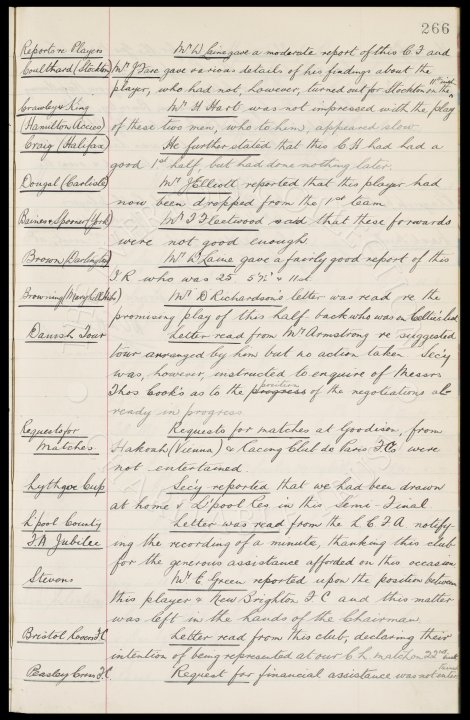 266
Reports re Players Mr W Laine gave a moderate report of this C F and
Coulthard (Stockton) Mr J Fare gave various details of his findings about the
player, who had not, however, turned out for Stockton on the 11th inst
Crawley & King Mr H Hart was not impressed with the play
(Hamilton Accies) of these two men, who to him, appeared slow.
Craig (Halifax) He further stated that this C H had had a
good 1st half, but had done nothing later.
Dougal (Carlisle) Mr J Ellcott reported that this player had
now been dropped from the 1st team
Baines & Spooner (York) Mr F Fleetwood said that these forwards
were not good enough.
Brown (Darlington) Mr W Laine gave a fairly good report of this
I R who was 25 5'7½" & 11st.
Browning (Maryhill Hibs) Mr D Richardson's letter was read re the
promising play of this half back who was on Celtics' list
Danish Tour Letter read from Mr Armstrong re suggested
tour arranged by him but no action taken Secy
was, however, instructed to enquire of Messrs
Thos Cooks as to the position of the negotiations al-
ready in progress
Requests for Matches Requests for matches at Goodison, from
Hakoah (Vienna) & Racing Club de Paris F.Cs were
not entertained
Lythgoe Cup Secy reported that we had been drawn
at home v L'pool Res in this Semi-Final
L'pool County Letter was read from the L C F A notify-
F.A Jubilee ing the recording of a minute, thanking this club
for the generous assistance afforded on this occasion
Stevens Mr E Green reported upon the position between
this player & New Brighton F C and this matter
was left in the hands of the Chairman
Bristol Rovers F.C Letter read from this club, declaring their
intention of being represented at our C.L. match on 22nd
Peasley Cross F.C Request for financial assistance was not enter-